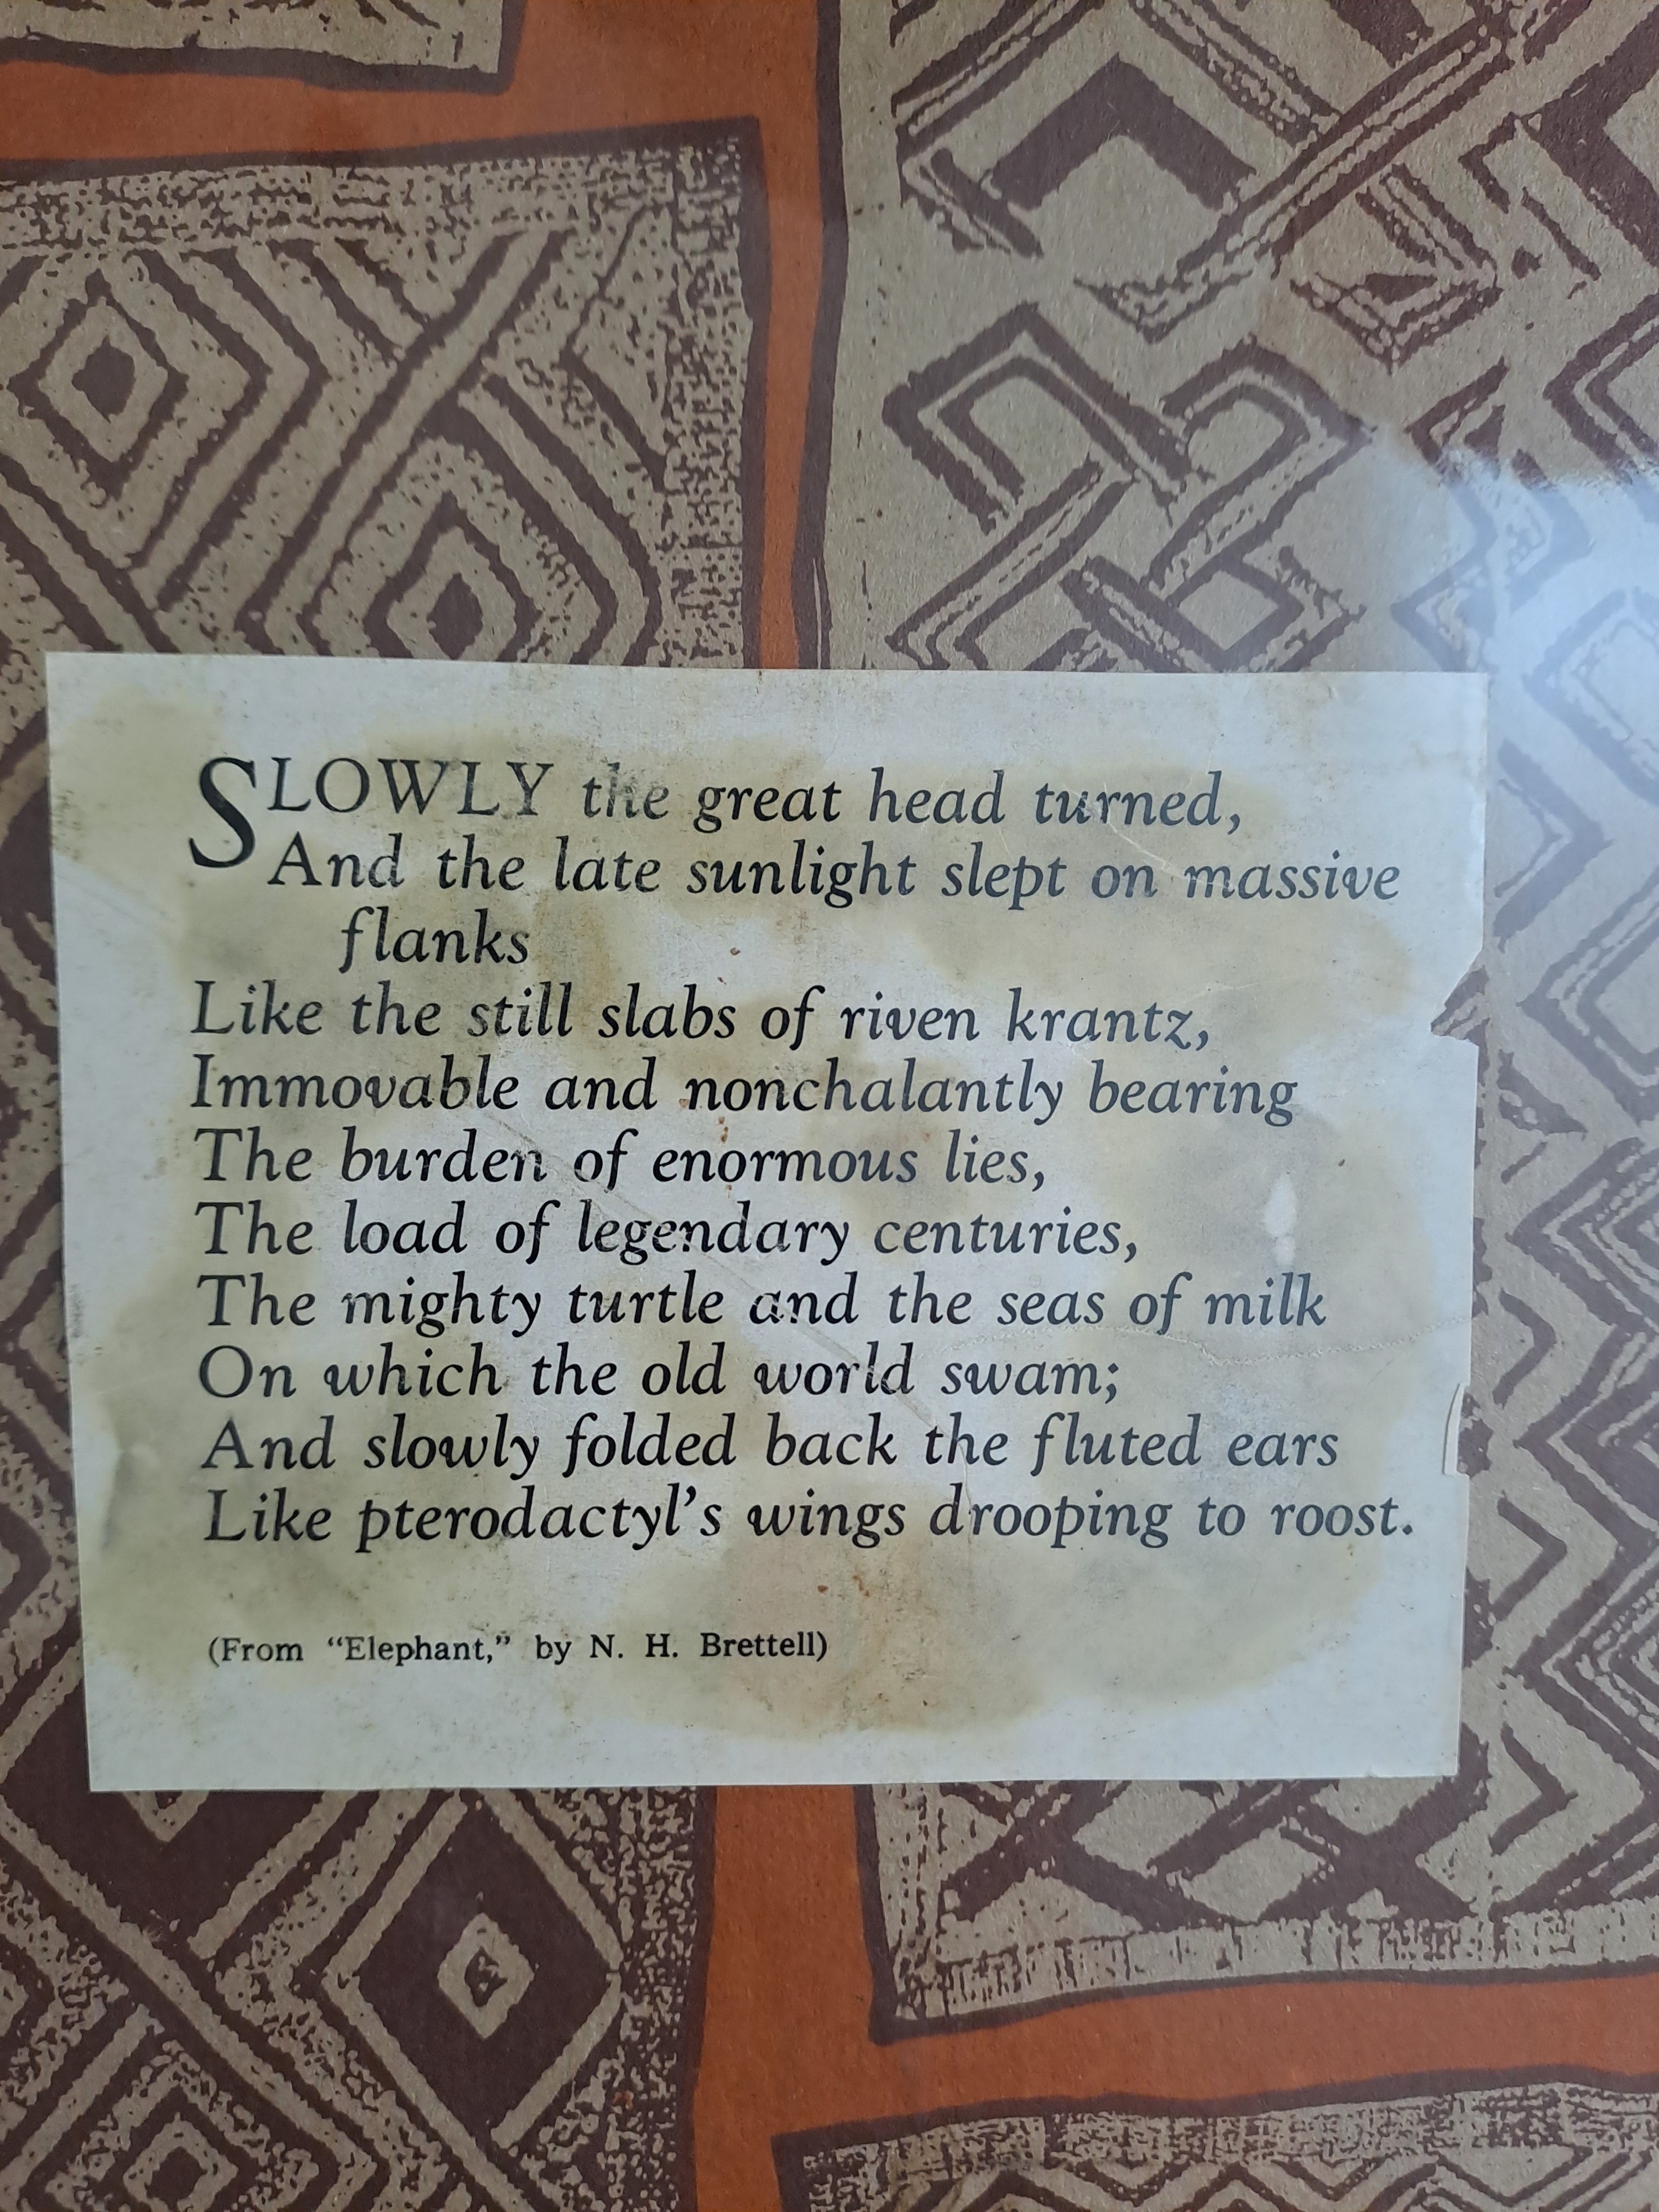 SLOWLY the great head turned,
And the late sunlight slept on massive
flanks
Like the still slabs of riven krantz,
Immovable and nonchalantly bearing
The burden of enormous lies,
The load of legendary centuries,
The mighty turtle and the seas of milk
On which the old world swam;
And slowly folded back the fluted ears
Like pterodactyl's wings drooping to roost.
(From “Elephant,” by N. H. Brettell)